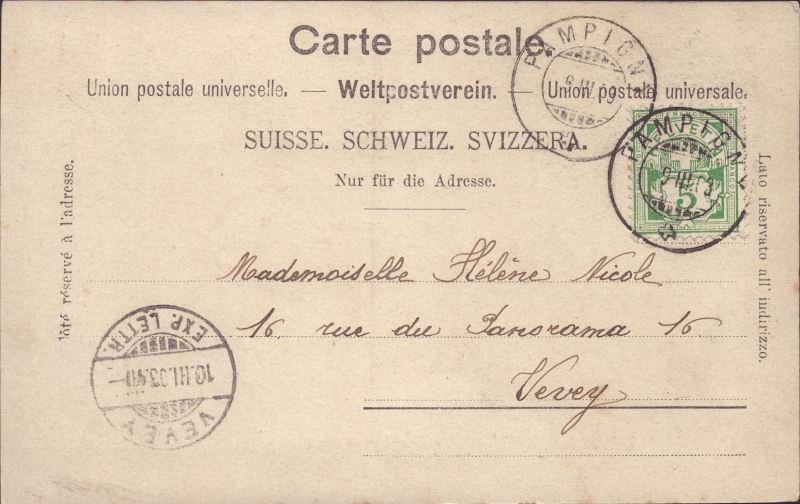 Carte postale.
Union postale universelle. — Weltpostverein. — Union postale universale.
SUISSE. SCHWEIZ. SVIZZERA.
Nur für die Adresse.
Côté réservé à l'adresse.
Lato riservato all' indirizzo.
PAMPIGNY
PAMPIGNY
9 III 03
HELVETIA
FRANCO
5
Mademoiselle Hélène Nicole
16 rue du Panorama 16
Vevey
EXP. LETTR.
10.III.03.
VEVEY